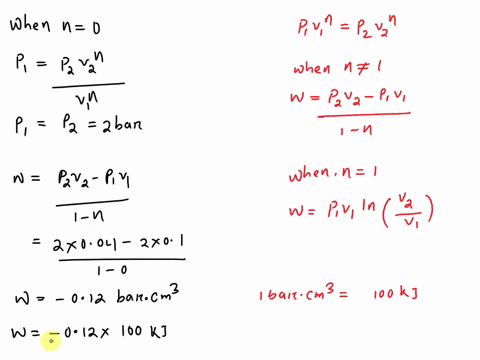 When n = 0
P₁ = P₂ v₂ⁿ / v₁ⁿ
P₁ = P₂ = 2 bar
W = P₂v₂ - P₁v₁ / 1-n
= 2×0.04 - 2×0.1 / 1-0
W = -0.12 bar.cm³
W = -0.12 × 100 KJ
P₁v₁ⁿ = P₂v₂ⁿ
when n ≠ 1
W = P₂v₂ - P₁v₁ / 1-n
when . n = 1
W = P₁v₁ ln (v₂/v₁)
1 bar.cm³ = 100 KJ